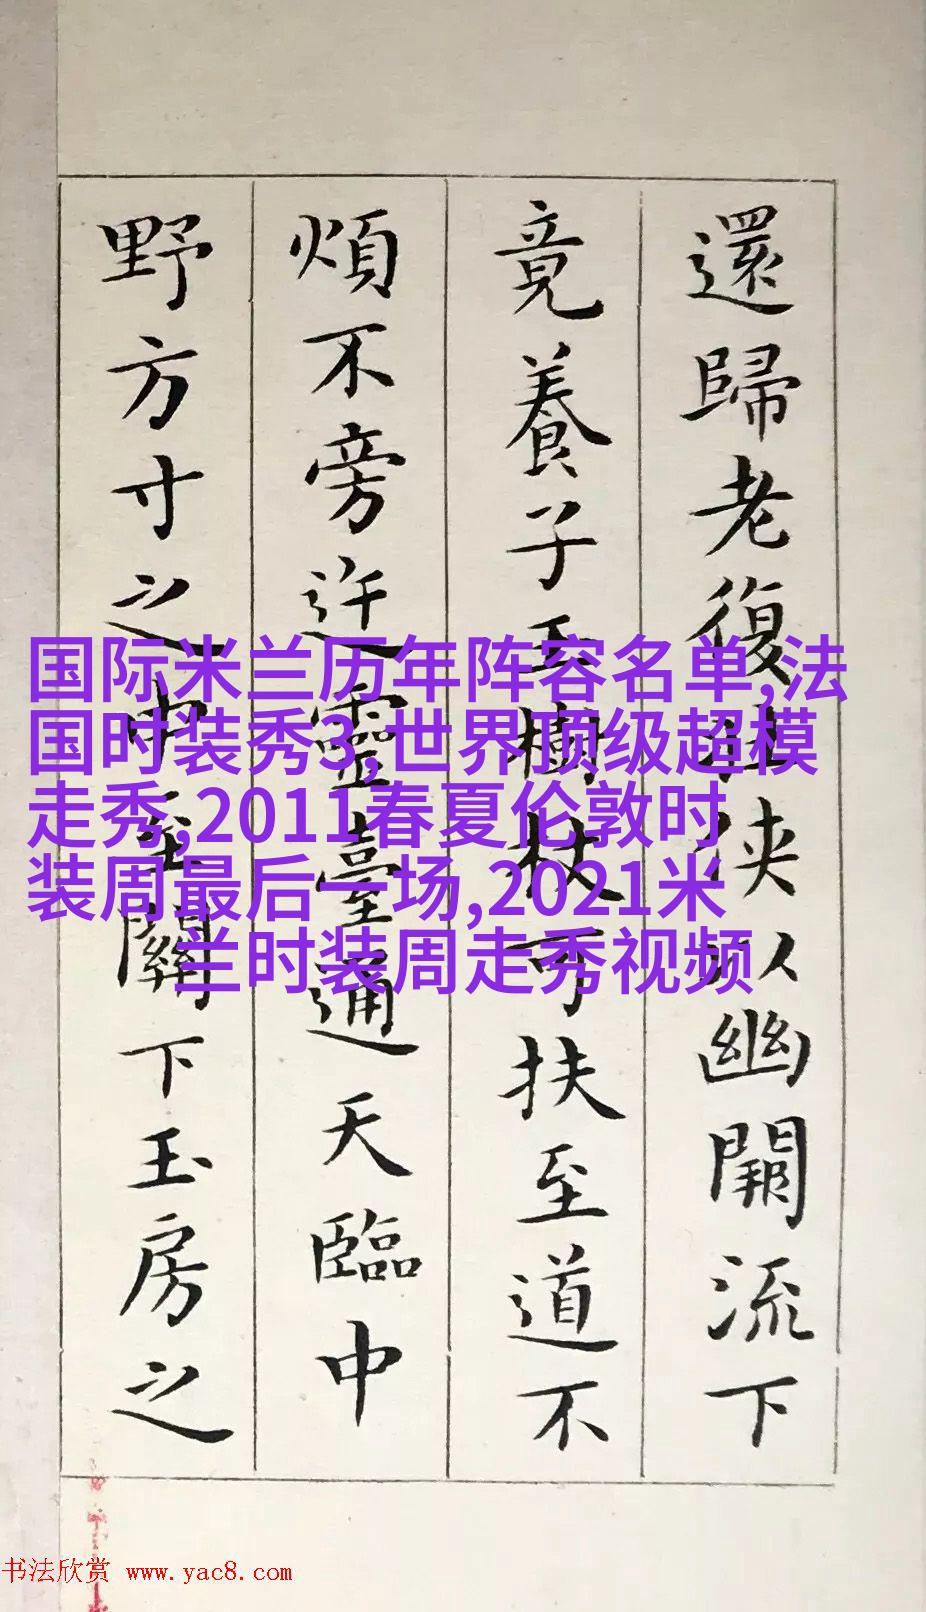 還歸老復壯侠以幽闕流下
竟養子玉樹杖可扶至道不
煩不旁迕靈臺通天臨中
野方寸之中至關下玉房之
国际米兰历年阵容名单,法
国时装秀3,世界顶级超模
走秀,2011春夏伦敦时
装周最后一场,2021米
兰时装周走秀视频
书法欣赏 www.yac8.com